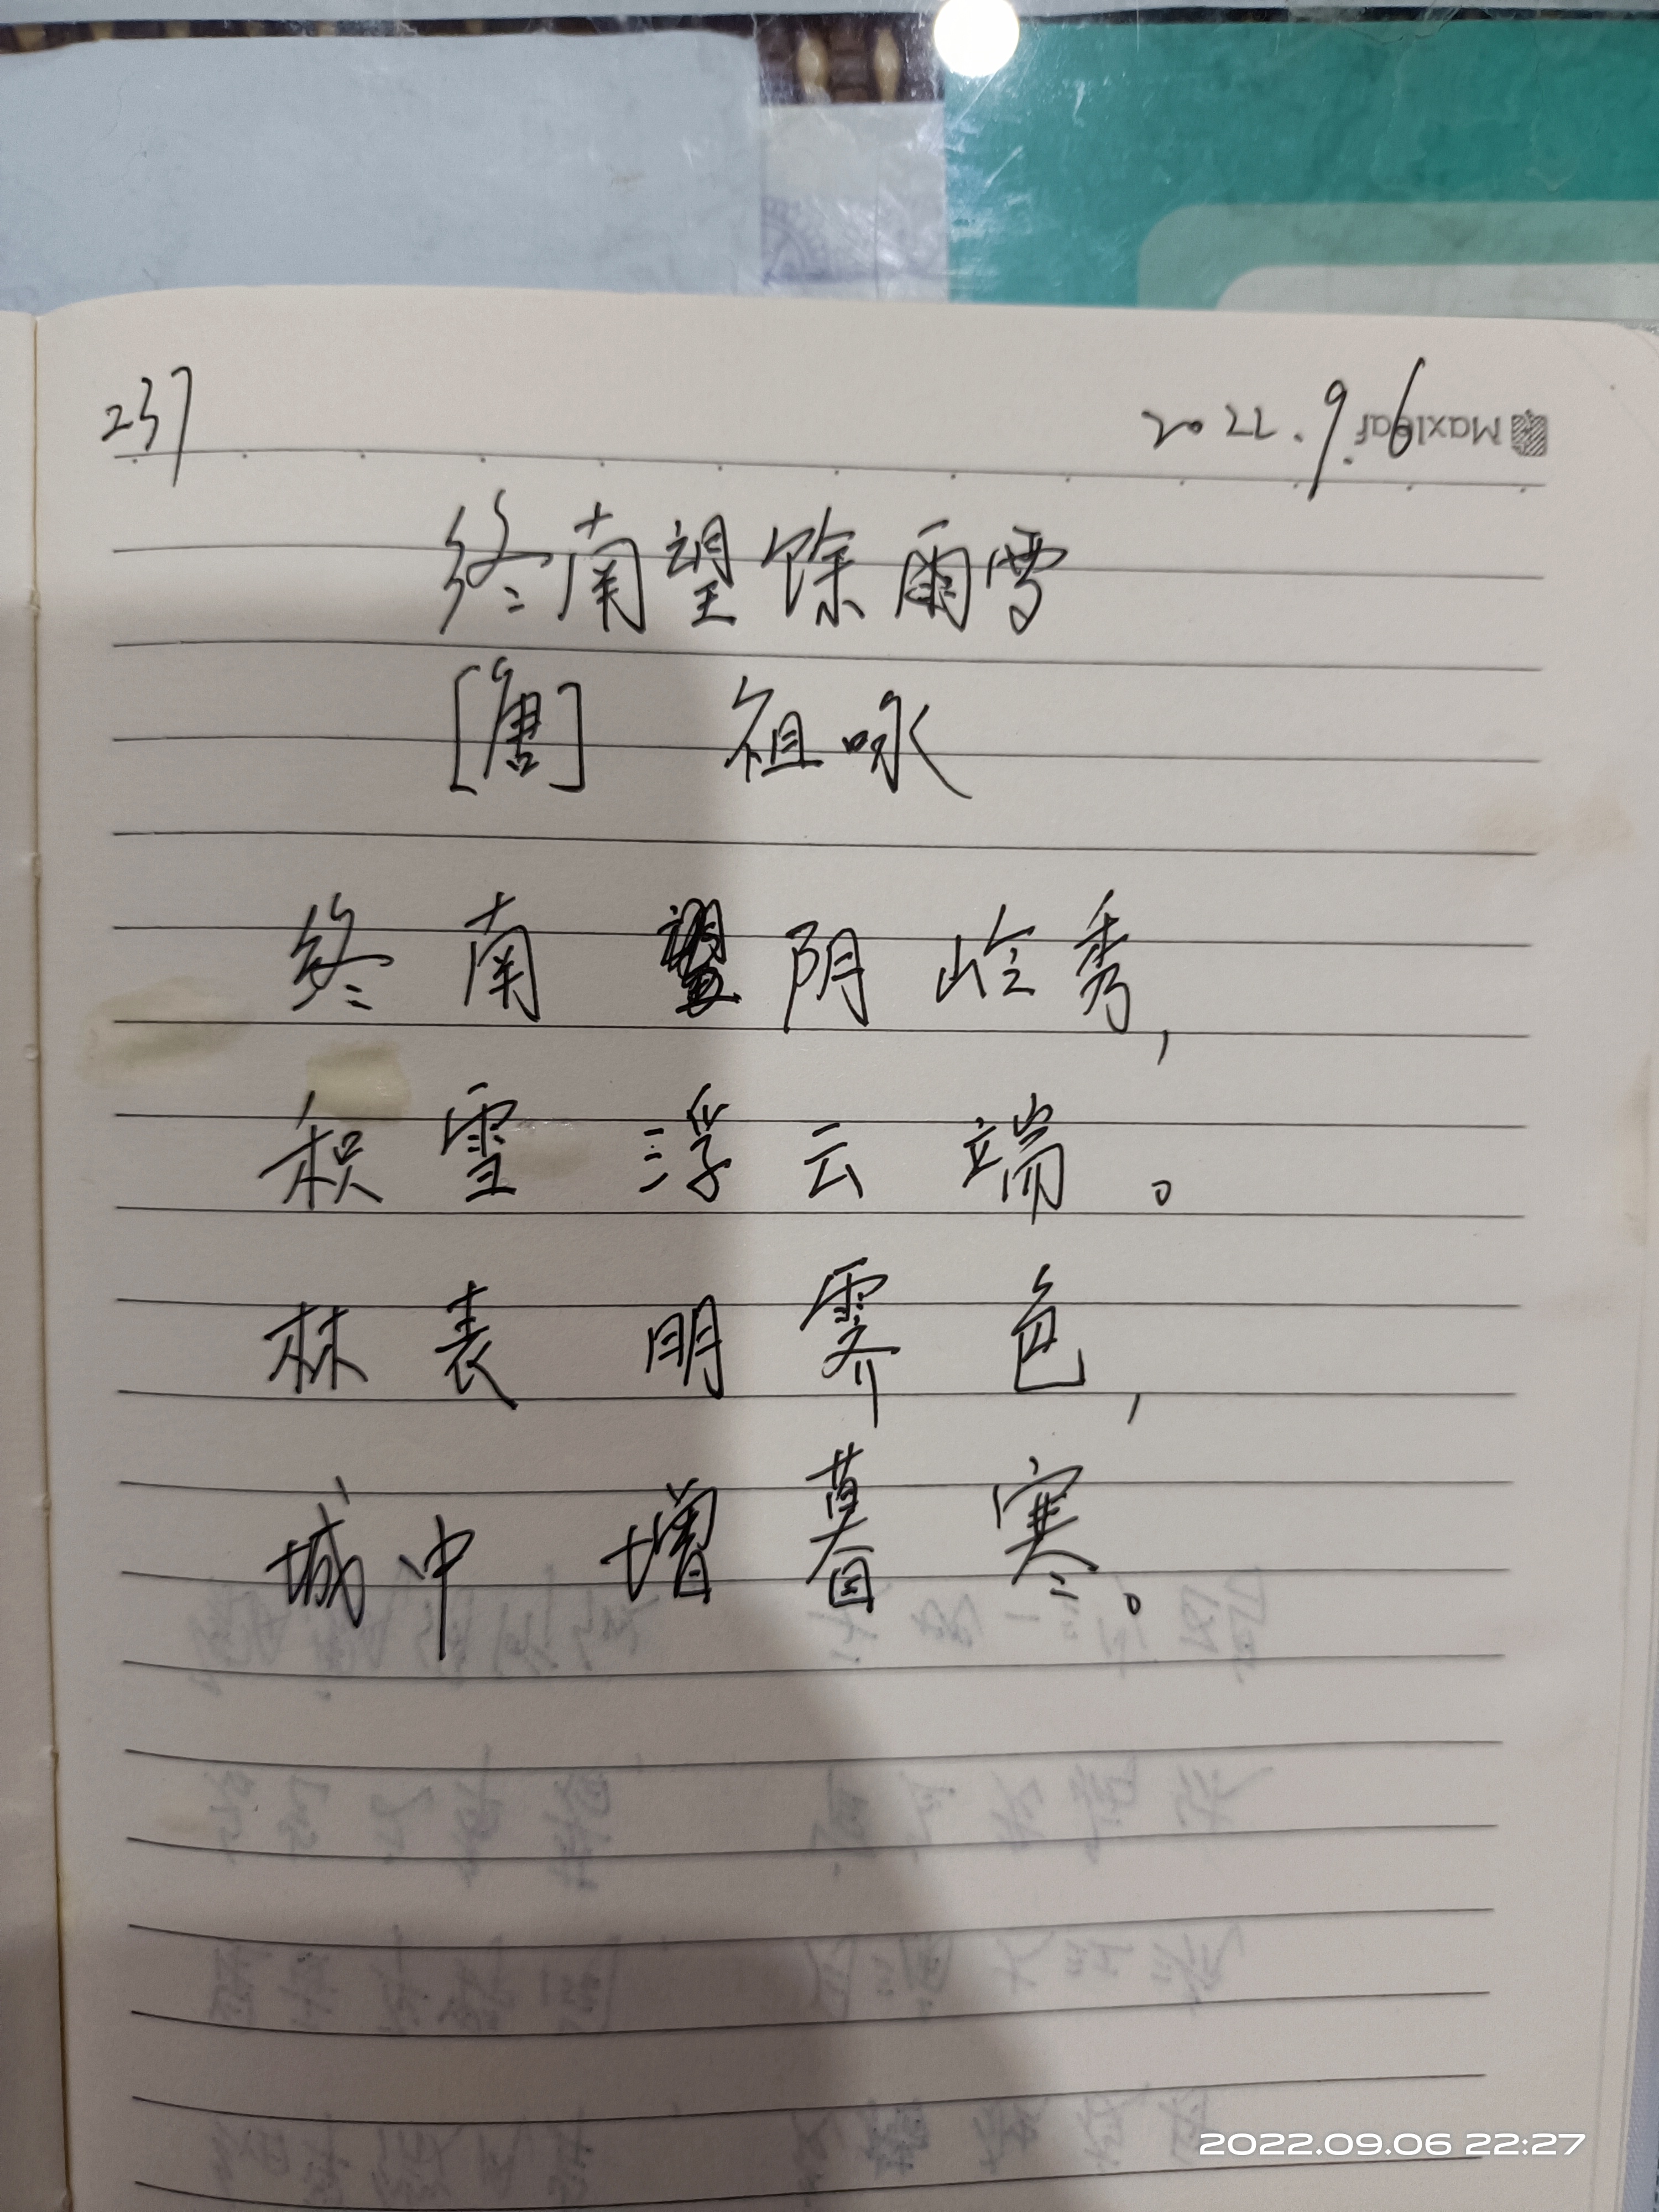 237
2022.9.6
Maxleaf
终南望馀雨雪
[唐] 祖咏
终南阴岭秀,
积雪浮云端。
林表明霁色,
城中增暮寒。
2022.09.06 22:27